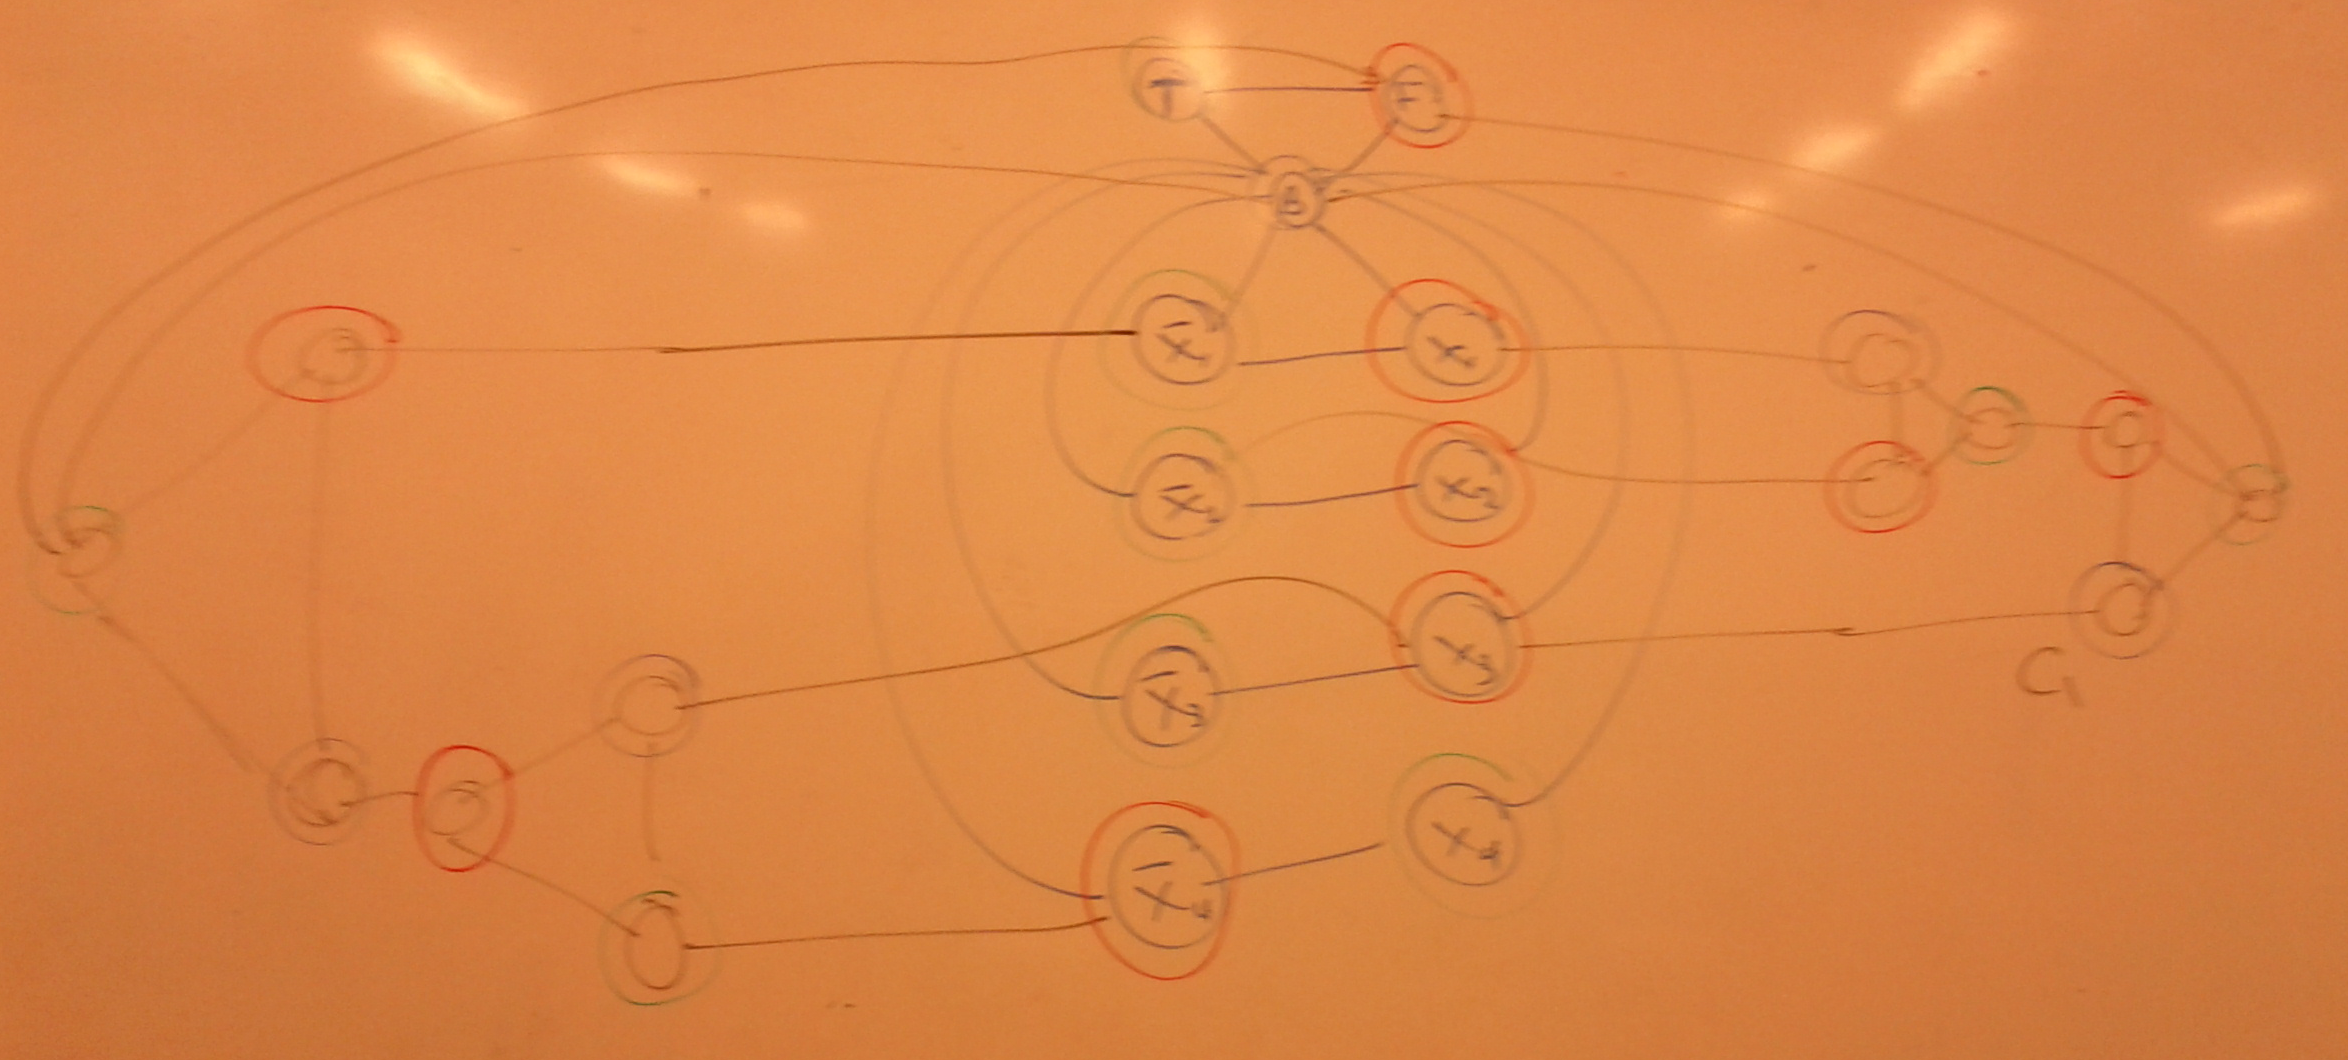 T F
B
x̄₁ x₁
x̄₂ x₂
x̄₃ x₃
C₁
x̄₄ x₄